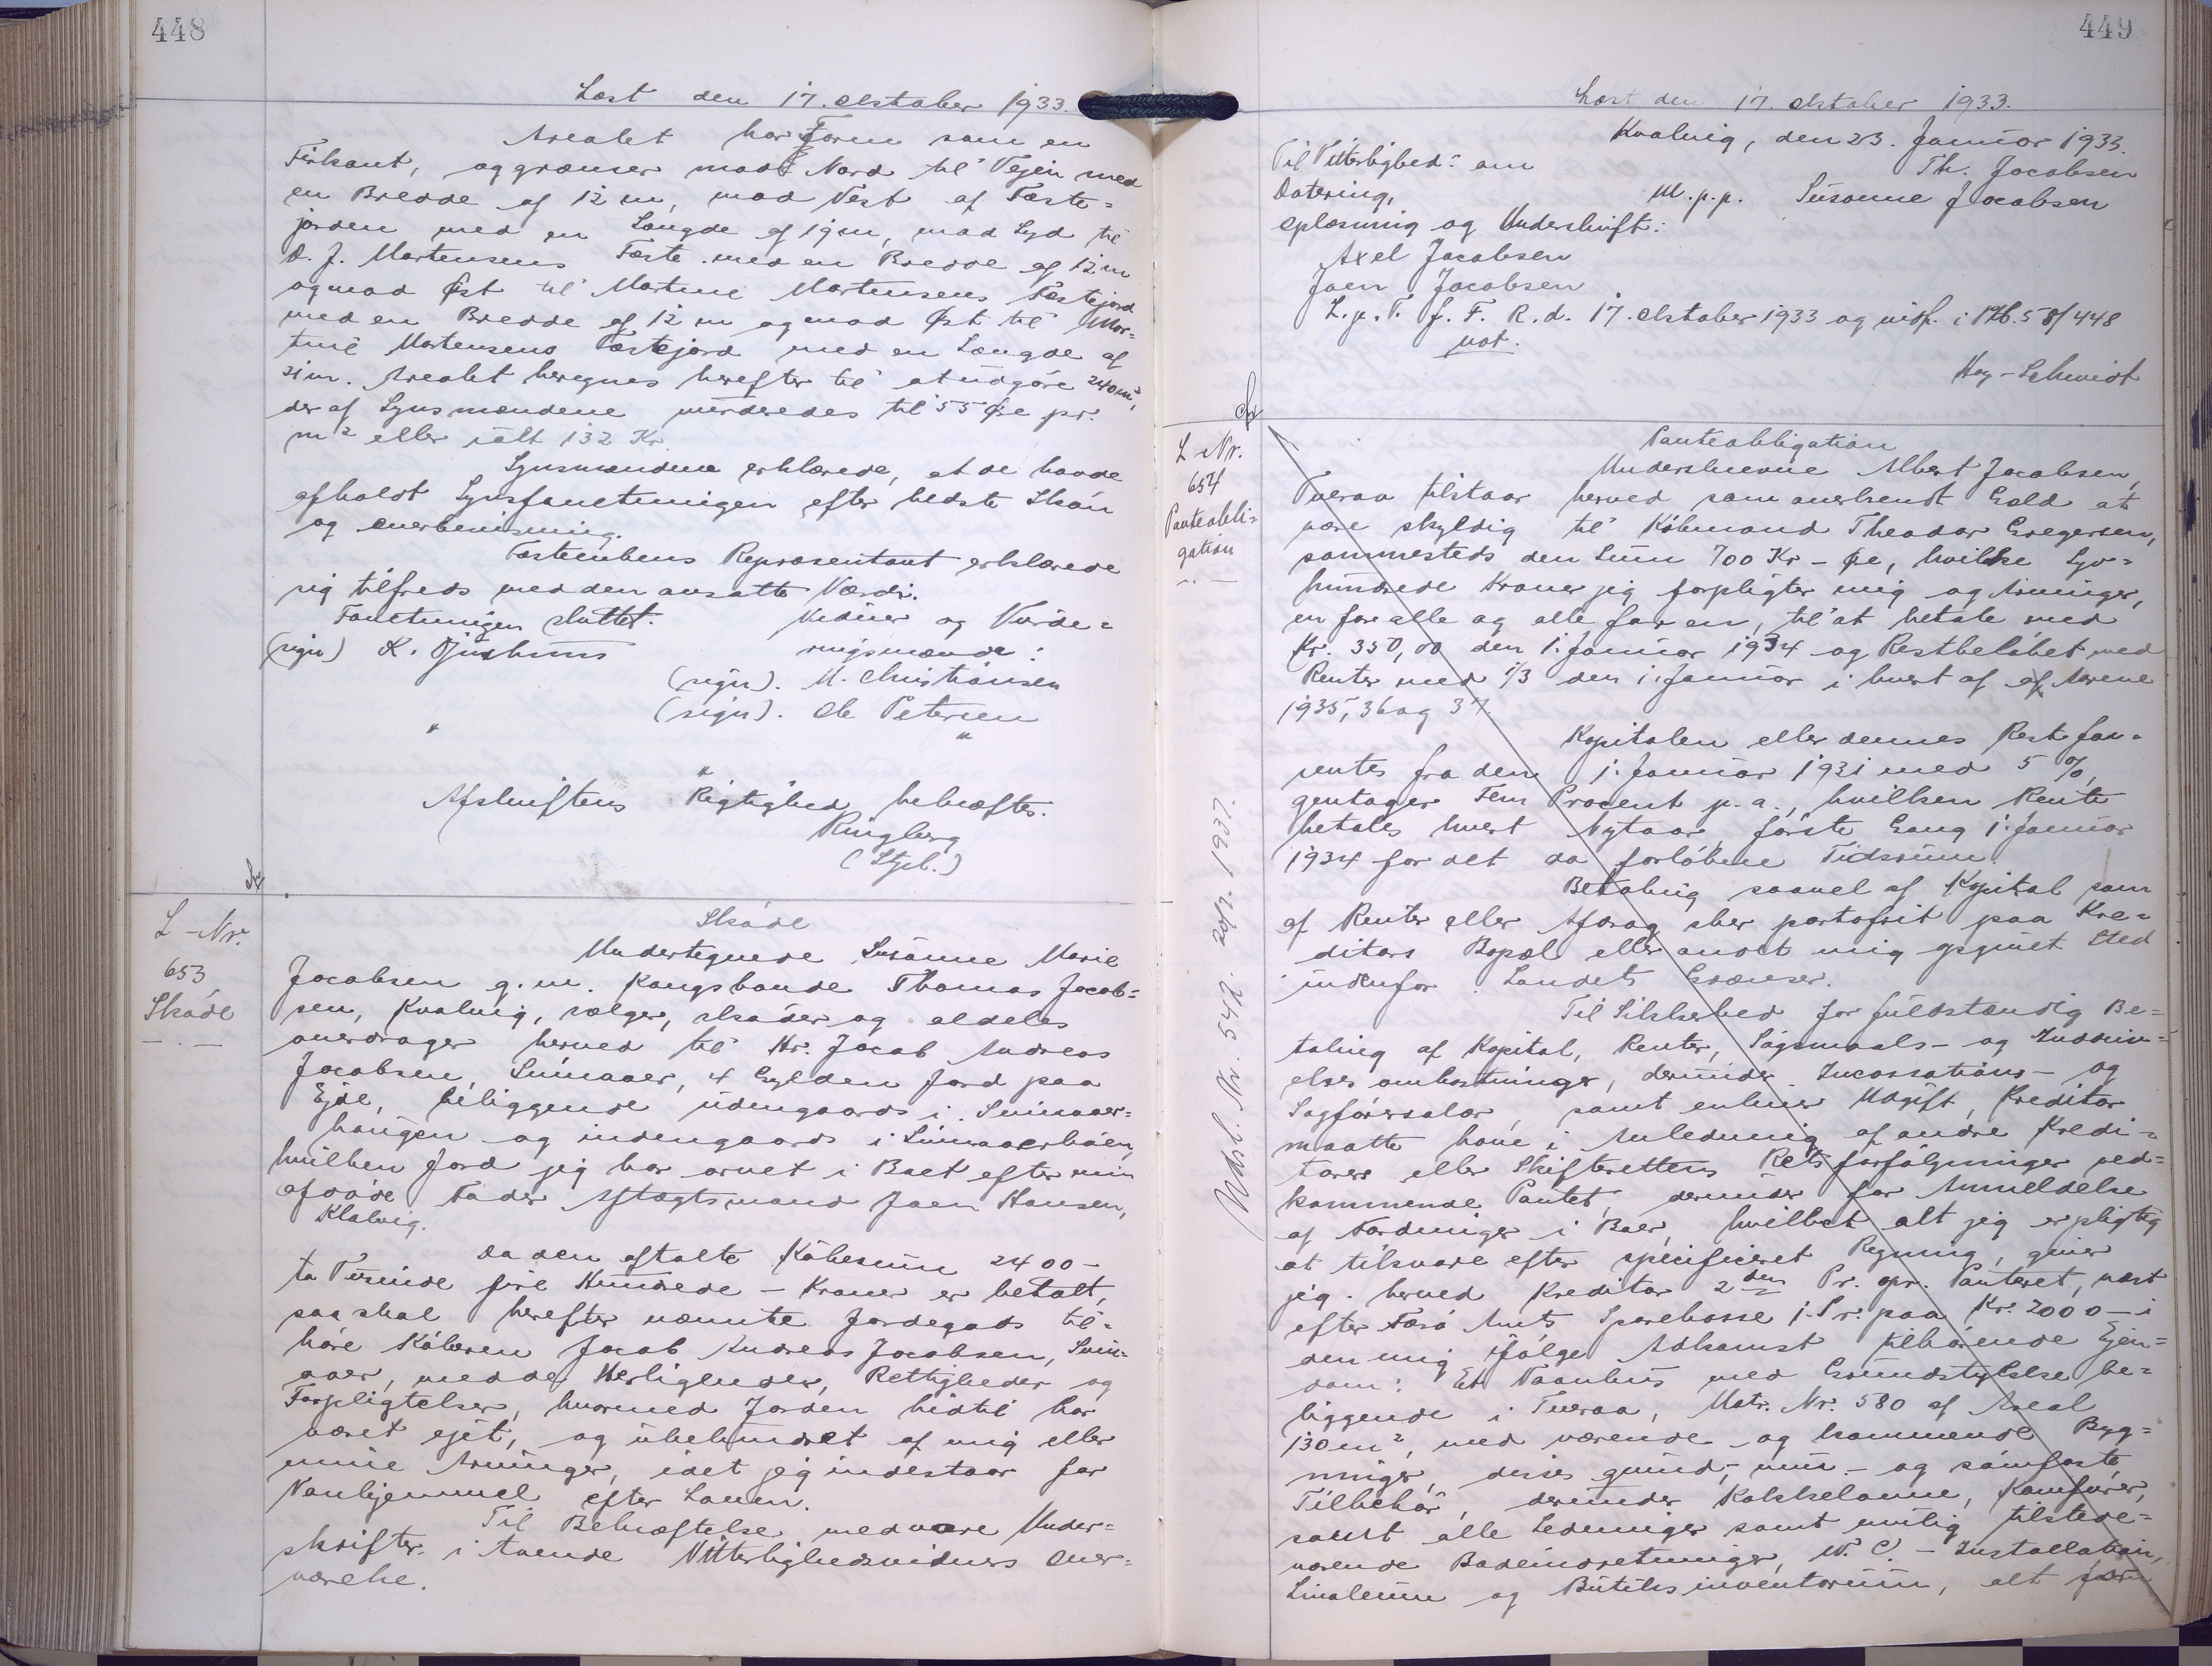 448
Læst den 17. Oktober 1933.
Arealet har Form som en
Firkant, og grænser mod Nord til Vejen med
en Bredde af 12 m, mod Vest af Fæste=
jorden med en Længde af 19 m, mod Syd til
D. J. Mortensens Fæste med en Bredde af 12 m
og mod Øst til Martine Mortensens Fæstejord
med en Bredde af 12 m og mod Øst til Mar=
tine Mortensens Fæstejord med en Længde af
21 m. Arealet beregnes herefter til at udgøre 240 m²,
der af Synsmændene vurderedes til 55 Øre pr.
m² eller ialt 132 Kr.
Synsmændene erklærede, at de havde
afholdt Synsforretningen efter bedste Skøn
og Overbevisning.
Fæsterens Repræsentant erklærede
sig tilfreds med den ansatte Værdi.
Forretningen sluttet. Vidner og Vurde=
(sign) K. Djurhuus ringsmænd:
(sign). M. Christiansen
(sign). Ole Petersen
Afskriftens Rigtighed bekræftes.
Ringberg
(Stpl.)
L-Nr.
653
Skøde
Skøde
Undertegnede Susanne Marie
Jacobsen g. m. Kongsbonde Thomas Jacob=
sen, Kvalvig, sælger, skøder og aldeles
overdrager herved til Hr. Jacob Andreas
Jacobsen, Suinaaer, 4 Gylden Jord paa
Ejde, beliggende udengaards i Suinaaer=
haugen og indengaards i Suinaaerbøen,
hvilken Jord jeg har arvet i Boet efter min
afdøde Fader Aftægtsmand Joen Hansen,
Klalvig.
Da den aftalte Købesum 2400 -
to Tusinde fire Hundrede - Kroner er betalt,
saa skal herefter nævnte Jordegods til=
høre Køberen Jacob Andreas Jacobsen, Suin=
aaer, med de Herligheder, Rettigheder og
Forpligtelser, hvormed Jorden hidtil har
været ejet, og ubehindret af mig eller
mine Arvinger, idet jeg indestaar for
Vanhjemmel efter Loven.
Til Bekræftelse med vore Under=
skrifter i tvende Vitterlighedsvidners Over=
værelse.
449
Læst den 17. Oktober 1933.
Kvalvig, den 23. Januar 1933.
Til Vitterlighed om Th. Jacobsen
Datering, M. p. p. Susanne Jacobsen
Oplæsning og Underskrift:
Axel Jacobsen
Joen Jacobsen
L. p. T. f. F. R. d. 17. Oktober 1933 og indf. i Ptb. 58/448
not.
Høg-Schmidt
L-Nr.
654
Panteobli=
gation
Udsl. Nr. 542. 20/2. 1937.
Panteobligation
Underskrevne Albert Jacobsen,
Tveraa tilstaar herved som anerkendt Gæld at
være skyldig til Købmand Theodor Gregersen,
sammesteds den Sum 700 Kr - Øre, hvilke Syv=
hundrede Kroner jeg forpligter mig og Arvinger,
en for alle og alle for en, til at betale med
Kr. 350,00 den 1. Januar 1934 og Restbeløbet med
Renter med 1/3 den 1. Januar i hvert af af Aarene
1935, 36 og 37.
Kapitalen eller dennes Rest for=
rentes fra den 1. Januar 1931 med 5 %,
gentager Fem Procent p. a., hvilken Rente
betales hvert Nytaar, første Gang 1. Januar
1934 for det da forløbne Tidsrum.
Betaling saavel af Kapital som
af Renter eller Afdrag sker portofrit paa Kre=
ditors Bopæl eller andet mig opgivet Sted
indenfor Landets Grænser.
Til Sikkerhed for fuldstændig Be=
taling af Kapital, Renter, Søgsmaals- og Inddriv=
elses omkostninger, derunder Incassations- og
Sagførersalær, samt enhver Udgift, Kreditor
maatte have i Anledning af andre Kredi=
torers eller Skifterettens Retsforfølgninger ved=
kommende Pantet, derunder for Anmeldelse
af Fordringer i Boer, hvilket alt jeg er pligtig
at tilsvare efter specificeret Regning, giver
jeg herved Kreditor 2den Pr. opr. Panteret, næst
efter Færø Amts Sparekasse 1. Pr. paa Kr. 2000 - i
den mig ifølge Adkomst tilhørende Ejen=
dom: Et Vaanhus med Grundstykke be=
liggende i Tveraa, Matr. Nr. 580 af Areal
130 m², med værende og kommende Byg=
ninger, disses grund-, mur- og sømfaste
Tilbehør, derunder Kakkelovne, Komfurer,
samt alle Ledninger samt mulig tilstede=
værende Badeindretninger, W. C. - Installation,
Linoleum og Butiksinventarium, alt for